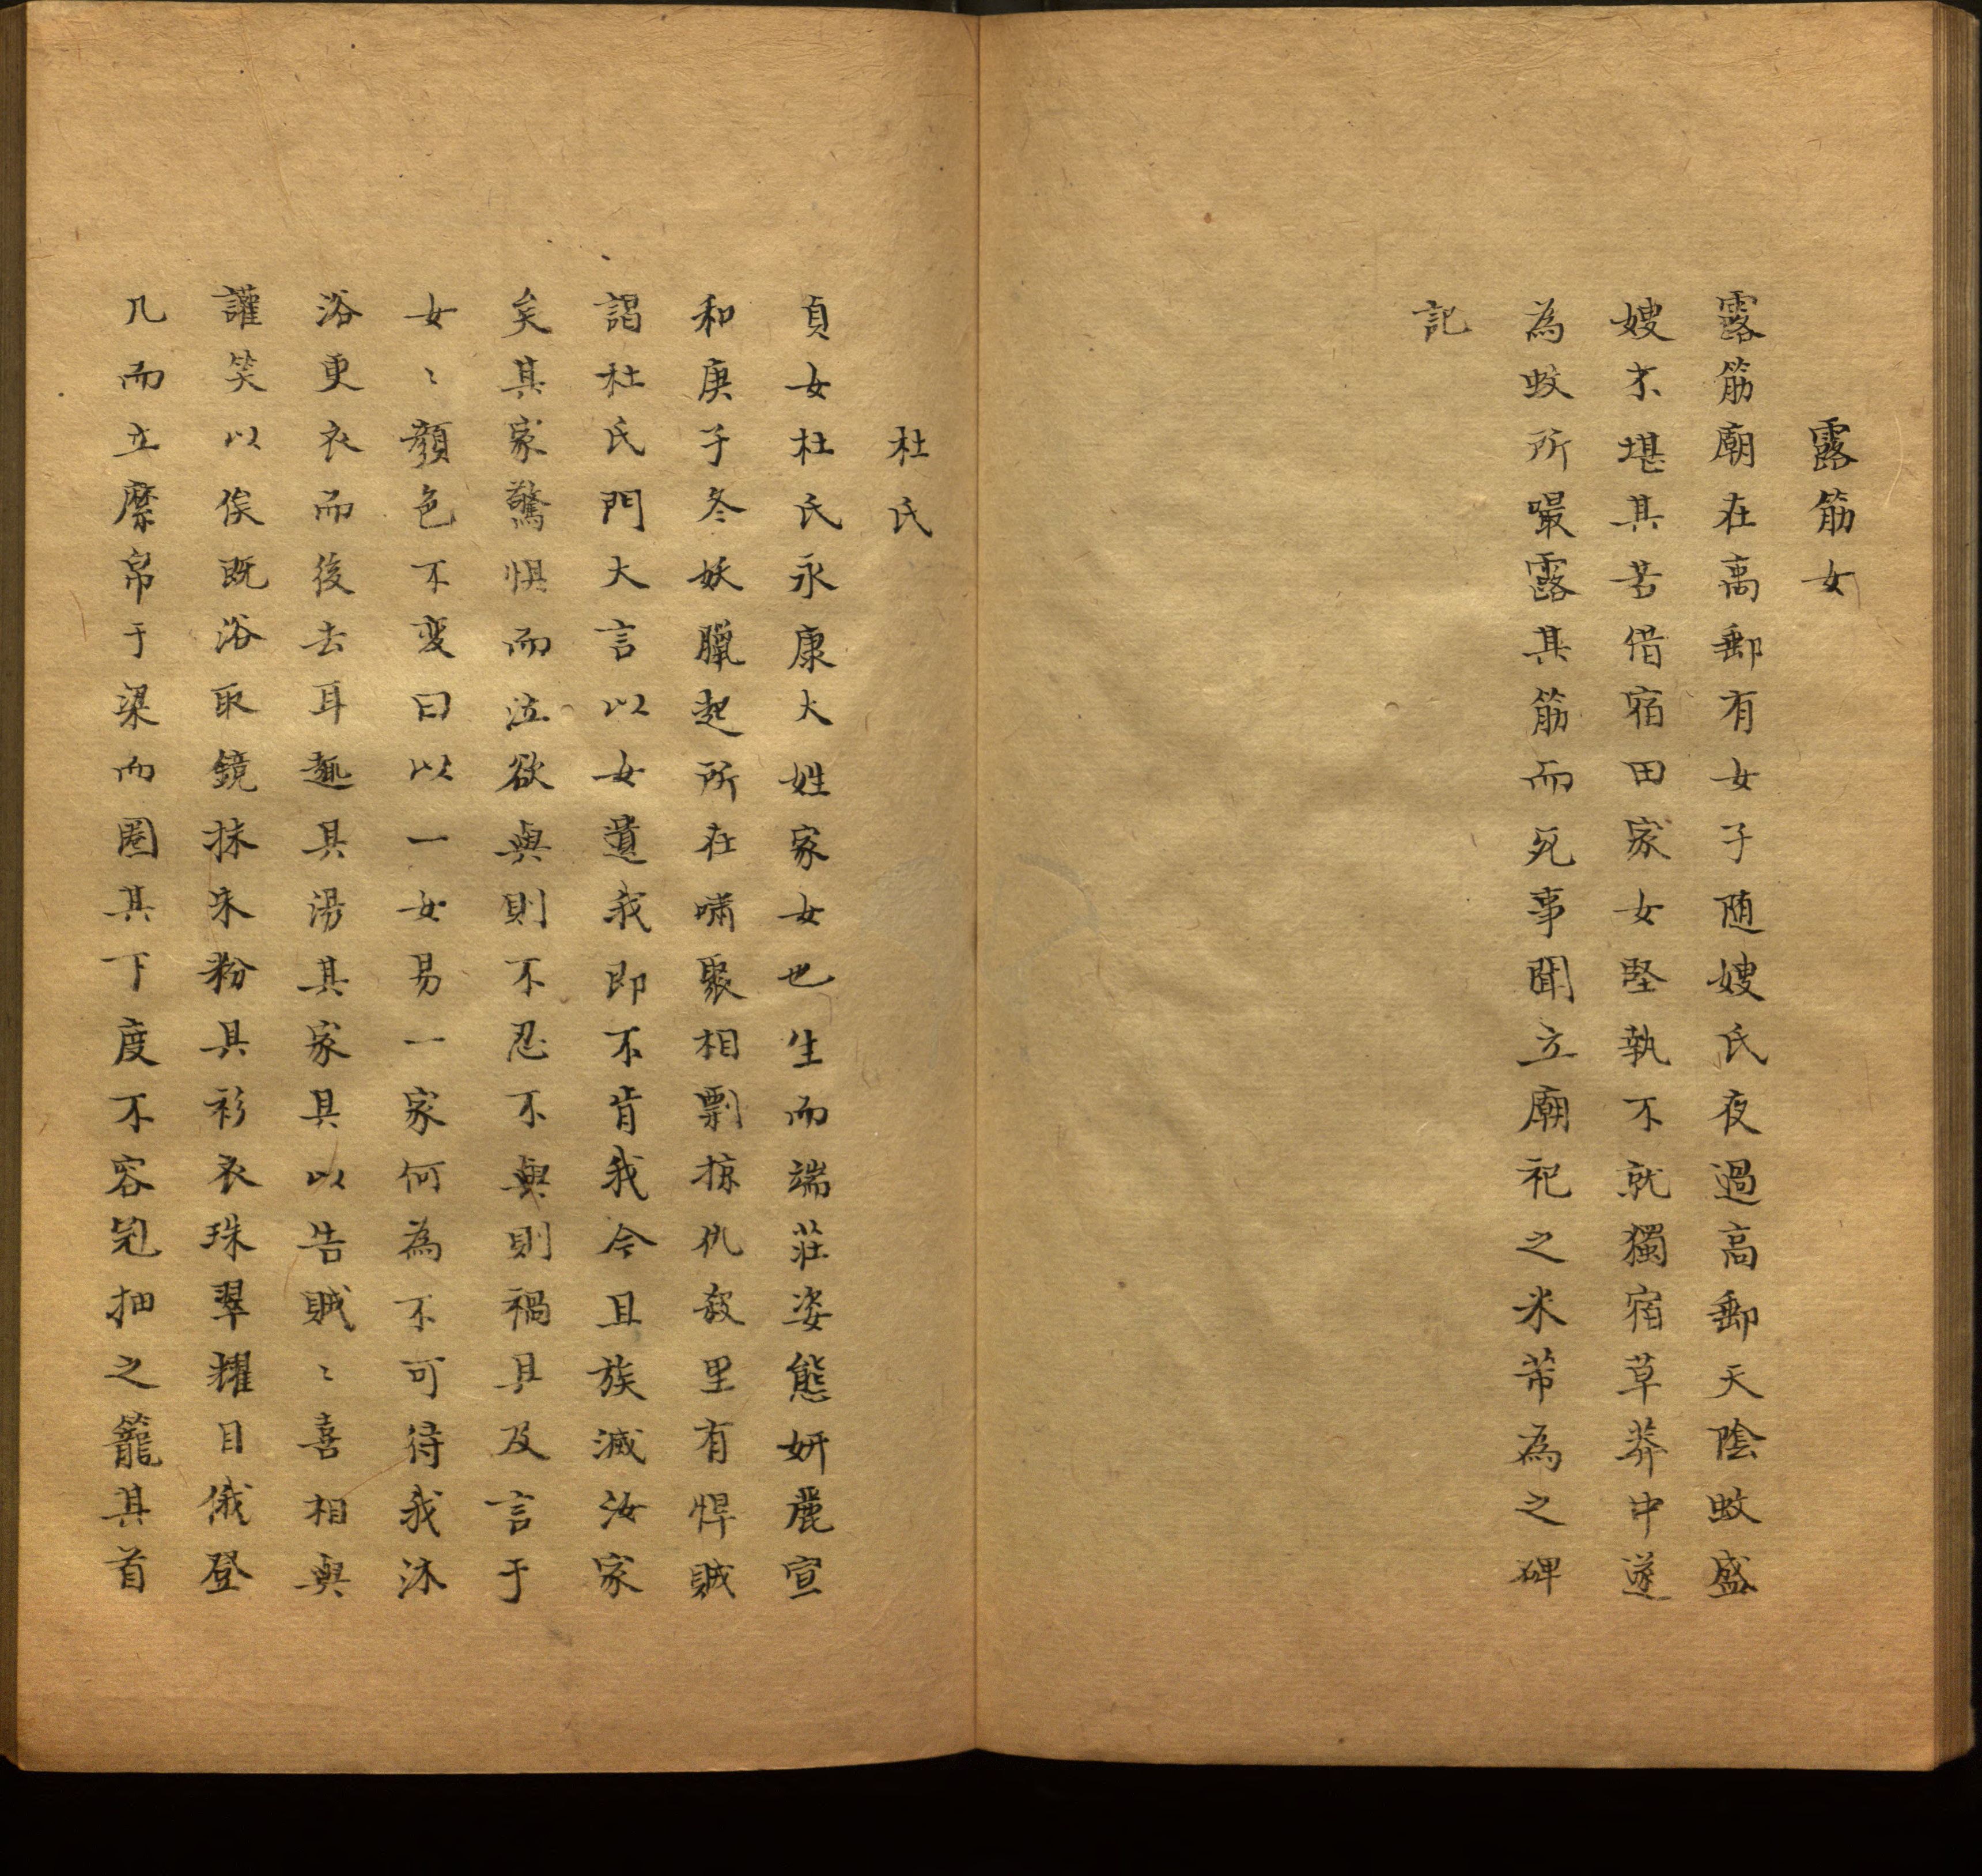 露筋女
露筋廟在高郵有女子随嫂氏夜過高郵天陰蚊盛
嫂不堪其苦借宿田家女堅執不就獨宿草莽中遂
為蚊所嘬露其筋而死事聞立廟祀之米芾為之碑
記
杜氏
貞女杜氏永康大姓家女也生而端莊姿態妍麗宣
和庚子冬妖臘起所在嘯聚相剽掠仇殺里有悍賊
謁杜氏門大言以女遺我即不肯我今且族滅汝家
矣其家驚惧而泣欲與則不忍不與則禍且及言于
女〻顏色不变曰以一女易一家何為不可待我沐
浴更衣而後去耳趣具湯其家具以告賊〻喜相與
讙笑以俟既浴取鏡抹朱粉具衫衣珠翠耀目俄登
几而立縻帛于梁而圈其下度不容冠抽之籠其首